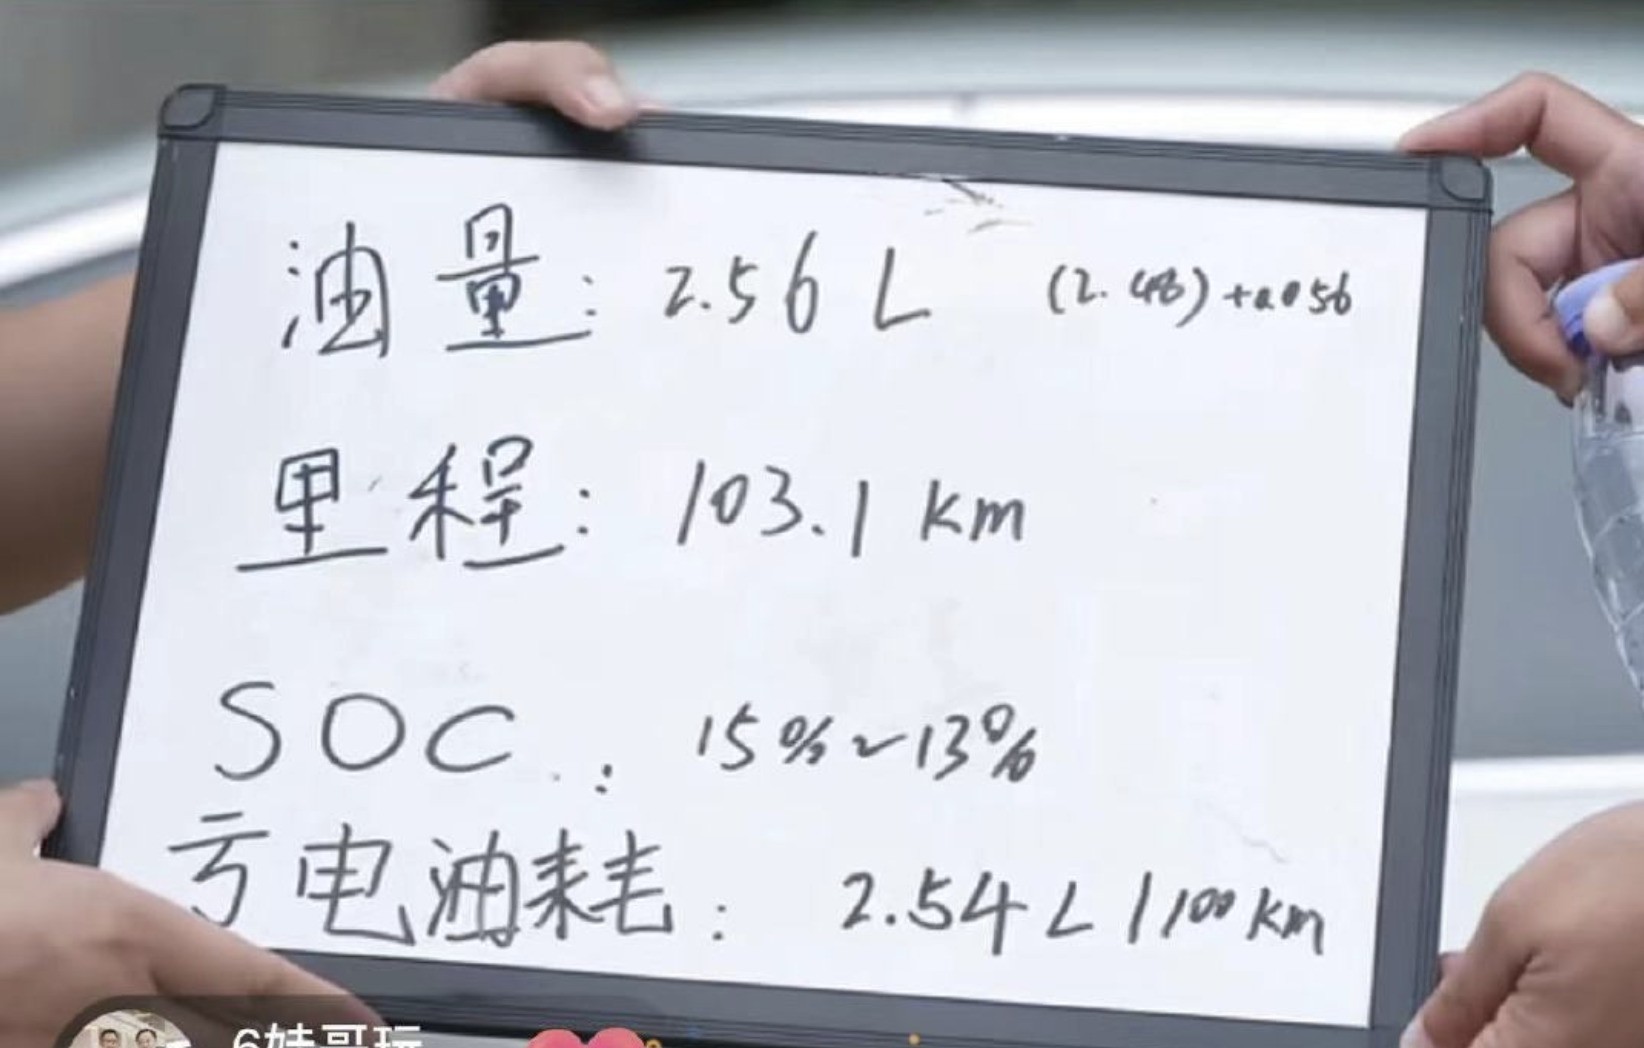 油量: 2.56 L (2.48)+0.056
里程: 103.1 km
SOC: 15%~13%
亏电油耗: 2.54 L/100km
6娃哥玩